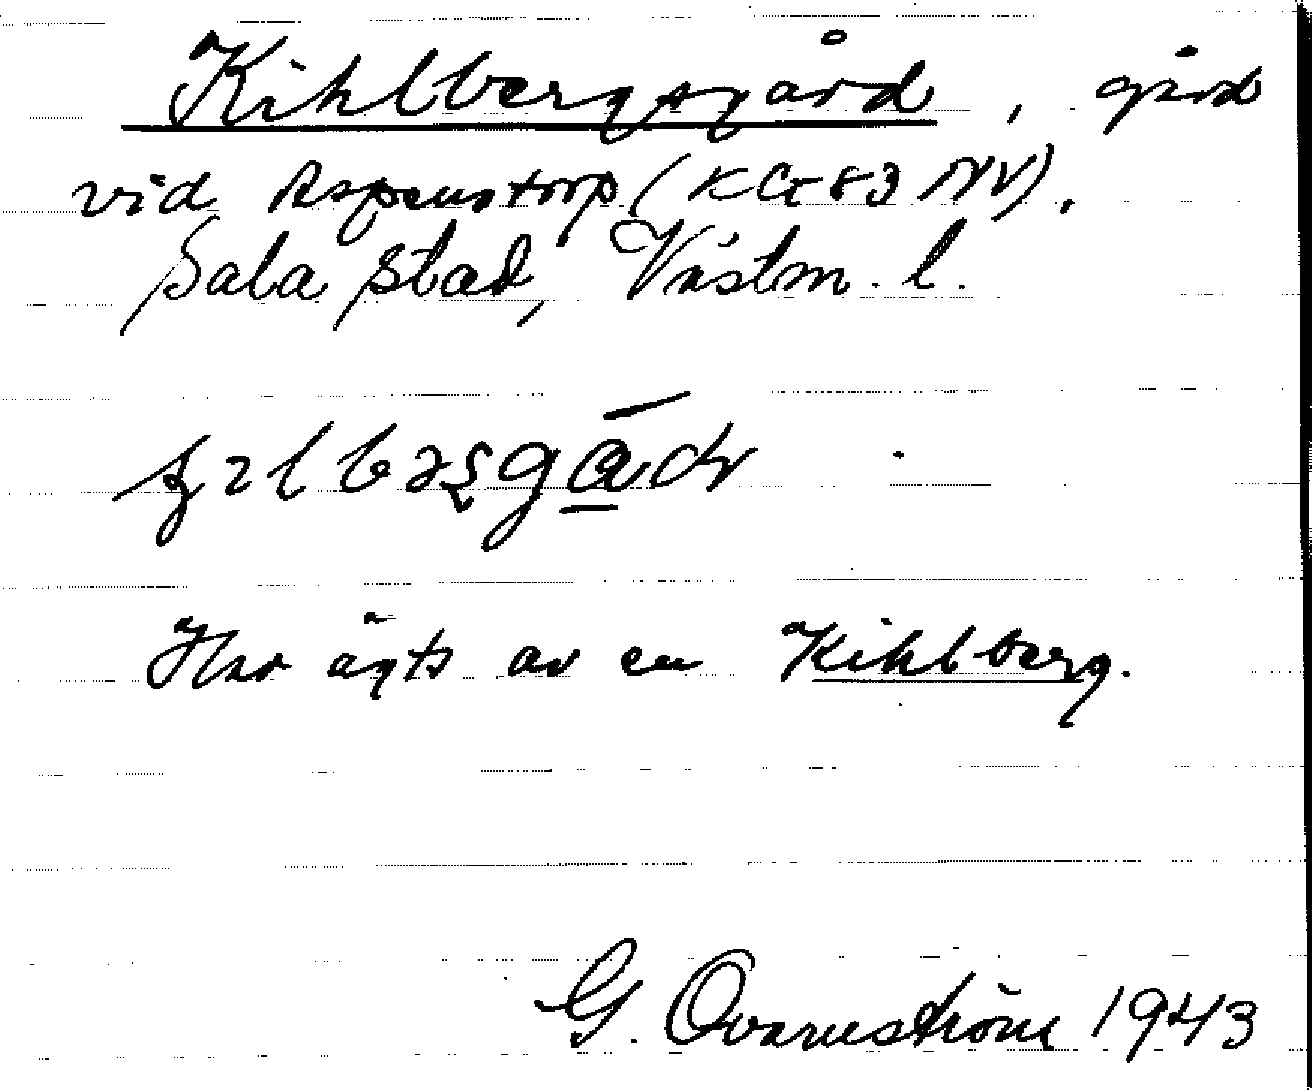 Kihlbergsgård, gård
vid Aspenstorp (KG 83 NV),
Sala stad, Västm. l.
Har ägts av en Kihlberg.
G. Qvarnström 1943